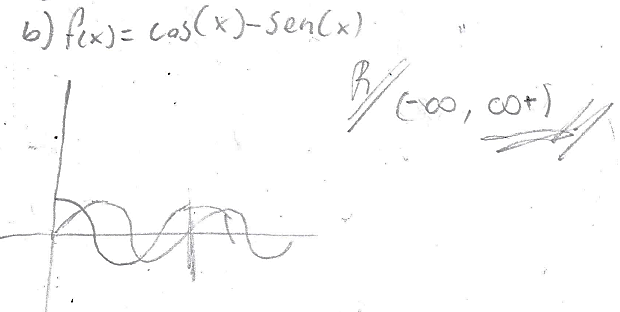 b) f(x) = cos(x) - Sen(x)
R// (-∞, ∞+)//